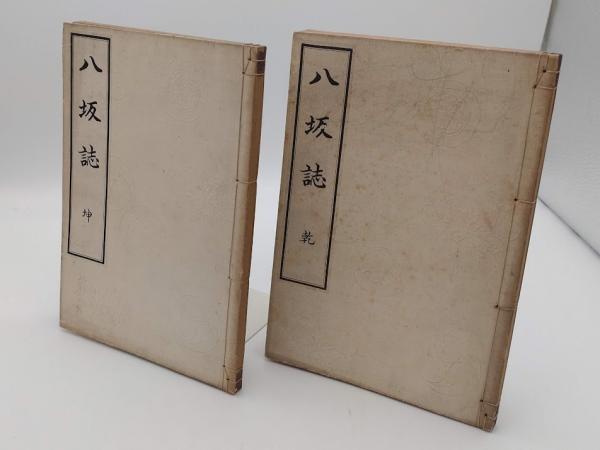 八坂誌 坤
八坂誌 乾